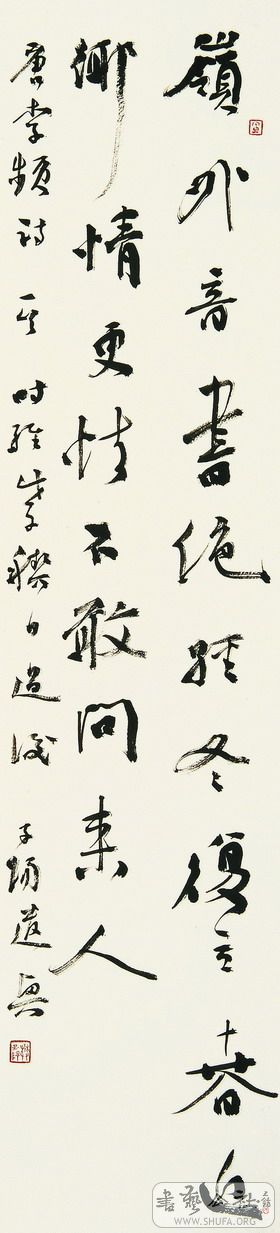 嶺外音書絕經冬復立春近
鄉情更怯不敢問來人
唐李頻詩 時維
書藝公社
WWW.SHUFA.ORG